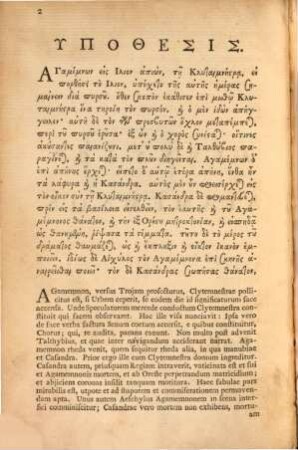 2
ΥΠΟΘΕΣΙΣ.
Αγαμέμνων εἰς Ἴλιον ἀπιὼν, τῇ Κλυταιμνήστρᾳ, εἰ
πορθήσοι τὸ Ἴλιον, ὑπέσχετο τῆς αὐτῆς ἡμέρας ση-
μαίνειν διὰ πυρσοῦ. ὅθεν σκοπὸν ἐκάθισεν ἐπὶ μισθῷ Κλυ-
ταιμνήστρα ἵνα τηροίη τὸν πυρσόν. καὶ ὁ μὲν ἰδὼν ἀπήγ-
γειλεν· αὐτὴ δὲ τὸν τῶν πρεσβυτῶν ὄχλον μεταπέμπε),
περὶ τοῦ πυρσοῦ ἐροῦσα· ἐξ ὧν καὶ ὁ χορὸς συνίσταται· οἵτινες
ἀκούσαντες παιανίζουσι. μετ' οὐ πολὺ δὲ καὶ Ταλθύβιος παρα-
γίνε), καὶ τὰ κατὰ τὸν πλοῦν διηγεῖται. Αγαμέμνων δ'
ἐπὶ ἀπήνης ἔρχε)· εἵπετο δ' αὐτῷ ἑτέρα ἀπήνη, ἔνθα ἦν
τὰ λάφυρα καὶ ἡ Κασάνδρα. αὐτὸς μὲν οὖν προεισέρχε) εἰς τὸν
οἶκον σὺν τῇ Κλυταιμνήστρᾳ. Κασάνδρα δὲ προμαντεύε),
πρὶν εἰς τὰ βασίλεια εἰσελθεῖν, τὸν ἑαυτῆς καὶ τοῦ Αγα-
μέμνονος θάνατον, καὶ τὴν ἐξ Ορέστου μητροκτονίαν, καὶ εἰσπηδᾷ
ὡς θανουμένη, ῥίψασα τὰ στέμματα. τοῦτο δὲ τὸ μέρος τοῦ
δράματος θαυμάζε), ὡς ἔκπληξιν ἔχον καὶ οἶκτον ἱκανόν.
ἰδίως δὲ Αἰσχύλος τὸν Αγαμέμνονα ἐπὶ σκηνῆς
ἀναιρεῖσθαι ποιεῖ· τὸν δὲ Κασάνδρας σιωπήσας θάνατον,
AGamemnon, versus Trojam profecturus, Clytemnestrae polli-
citus est, si Urbem everteret, se eodem die id significaturum face
accensa. Unde Speculatorem mercede conductum Clytemnestra con-
stituit qui facem observaret. Hac ille visa nunciavit: Ipsa vero
de face verba factura Senum coetum accersit, e quibus constituitur,
Chorus; qui, re audita, paeana canunt. Non multo post advenit
Talthybius, et quae inter navigandum acciderant narrat. Aga-
memnon rheda venit, quem sequitur rheda alia, in qua manubiae
et Casandra. Prior ergo ille cum Clytemnestra domum ingreditur.
Casandra autem, priusquam Regiam intraverit, vaticinata est et sui
et Agamemnonis mortem, et ab Oreste perpetrandum matricidium;
et abjiciens coronas insilit tanquam moritura. Haec fabulae pars
mirabilis est, utpote et ad stuporem et commiserationem permoven-
dam apta. Unus autem Aeschylus Agamemnonem in scena inter-
fici comminiscitur; Casandrae vero mortem non exhibens, mortu-
am